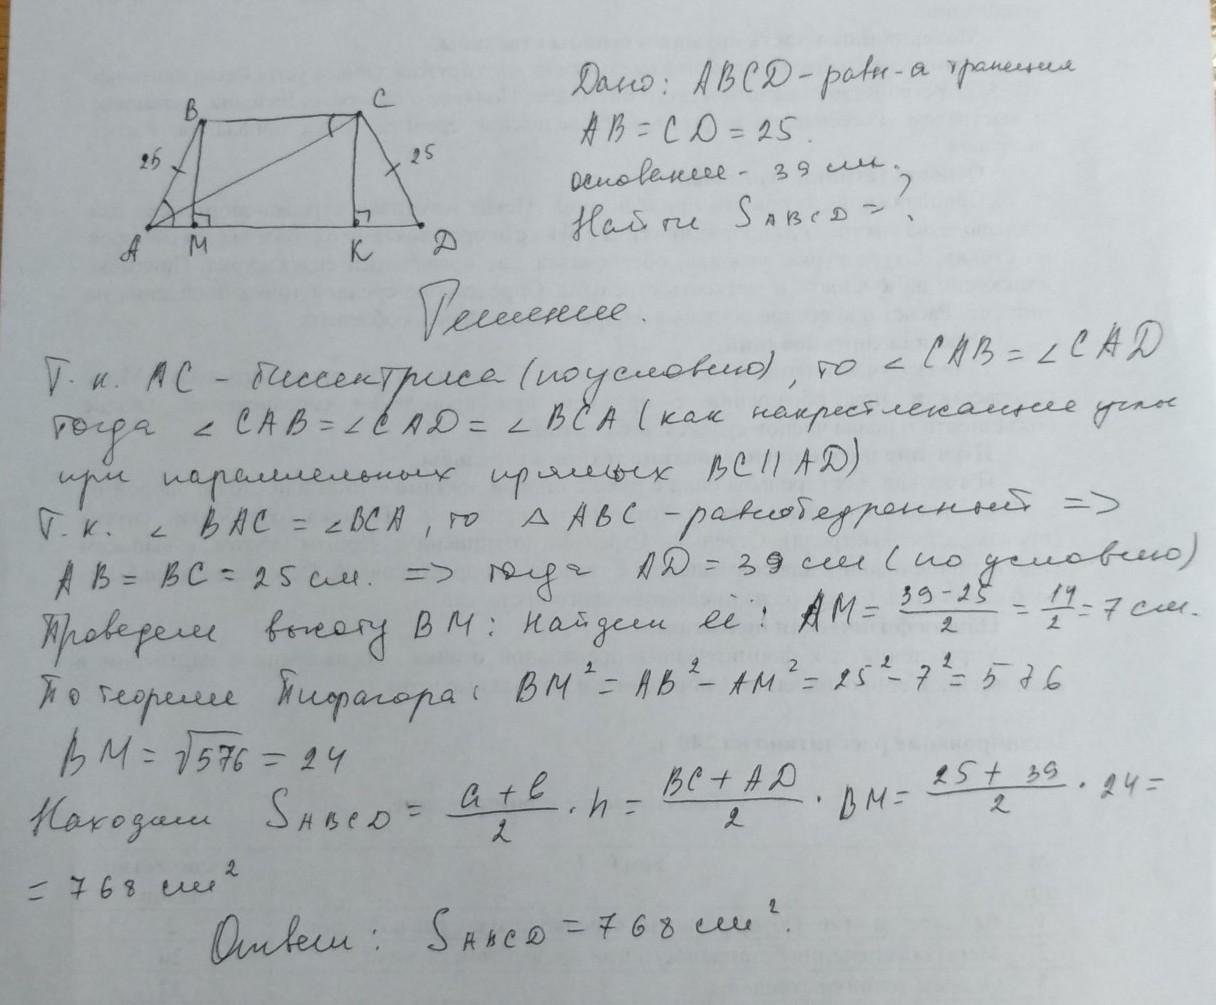 Дано: ABCD - равн-а трапеция
AB = CD = 25.
основание - 39 см.
Найти S ABCD = ?
B
C
25
25
A
M
K
D
Решение.
Т.к. AC - биссектриса (по условию), то ∠CAB = ∠CAD
тогда ∠CAB = ∠CAD = ∠BCA (как накрестлежащие углы
при параллельных прямых BC || AD)
Т.к. ∠BAC = ∠BCA, то △ABC - равнобедренный =>
AB = BC = 25 см. => тогда AD = 39 см (по условию)
Проведем высоту BM: найдем её: AM = (39-25)/2 = 14/2 = 7 см.
По теореме Пифагора: BM² = AB² - AM² = 25² - 7² = 576
BM = √576 = 24
Находим S ABCD = (a+b)/2 · h = (BC+AD)/2 · BM = (25+39)/2 · 24 =
= 768 см²
Ответ: S ABCD = 768 см².